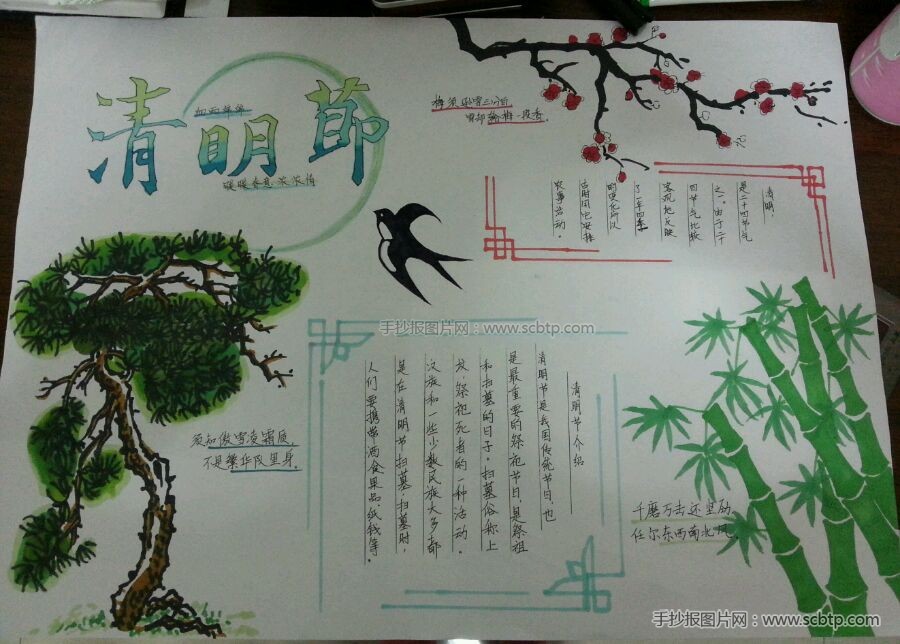 清明節
暖暖春意 浓浓情
梅须逊雪三分白
雪却输梅一段香。
清明,
是二十四节气
之一。由于二十
四节气比较
客观地反映
了一年四季
的变化所以
古时用它安排
农事活动。
手抄报图片网：www.scbtp.com
清明节介绍
清明节是我国传统节日,也
是最重要的祭祀节日,是祭祖
和扫墓的日子。扫墓俗称上
坟,祭祀死者的一种活动。
汉族和一些少数民族大多都
是在清明节扫墓。扫墓时,
人们要携带酒食果品,纸钱等.
须知傲雪凌霜质,
不是繁华队里身.
千磨万击还坚劲,
任尔东西南北风.
手抄报图片网：www.scbtp.com